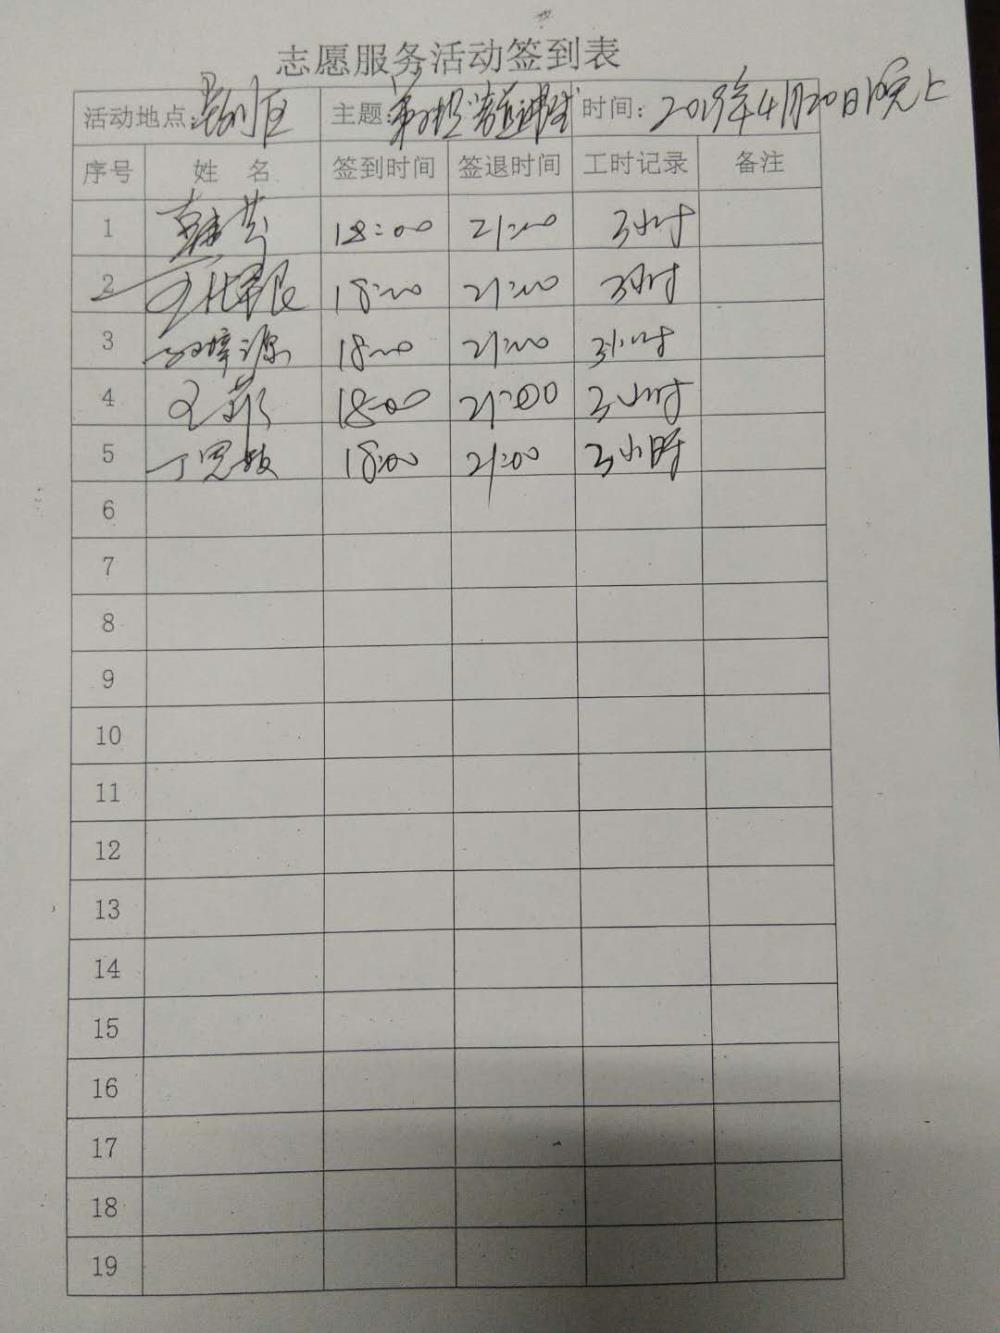 志愿服务活动签到表
活动地点: 区 主题: 时间: 2019年4月20日晚上
序号 姓 名 签到时间 签退时间 工时记录 备注
1 18:00 21:00 3小时
2 18:00 21:00 3小时
3 梓源 18:00 21:00 3小时
4 王 18:00 21:00 3小时
5 丁思敏 18:00 21:00 3小时
6
7
8
9
10
11
12
13
14
15
16
17
18
19